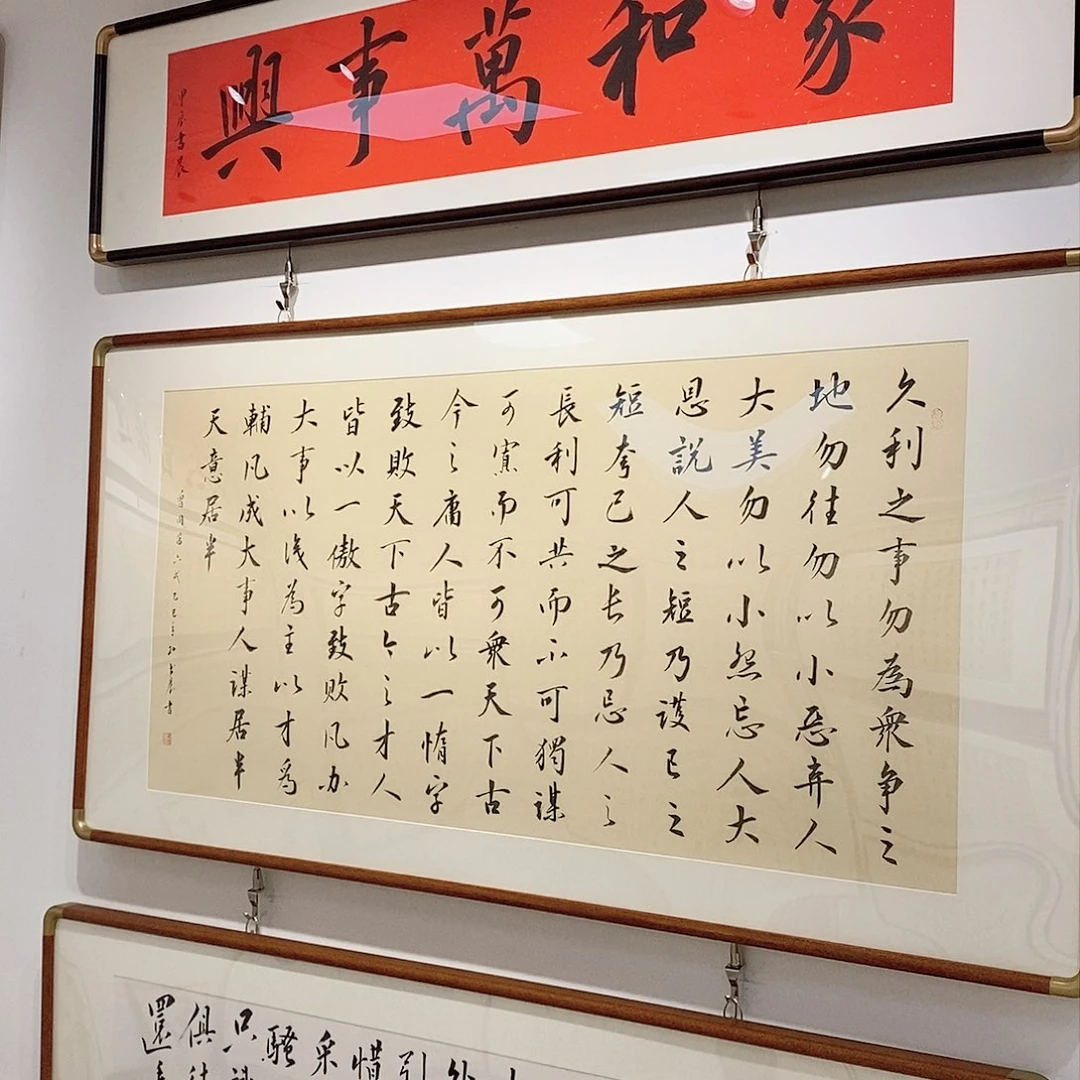 家和萬事興
甲辰
久利之事勿為衆争之
地勿往勿以小惡弃人
大美勿以小怨忘人大
恩說人之短乃護己之
短夸己之长乃忌人之
長利可共而不可獨謀
可寡而不可衆天下古
今之庸人皆以一惰字
致敗天下古今之才人
皆以一傲字致敗凡办
大事以識為主以才為
輔凡成大事人謀居半
天意居半
曾國藩六戒乙巳
引
惜
采
騷
只識
俱往
還